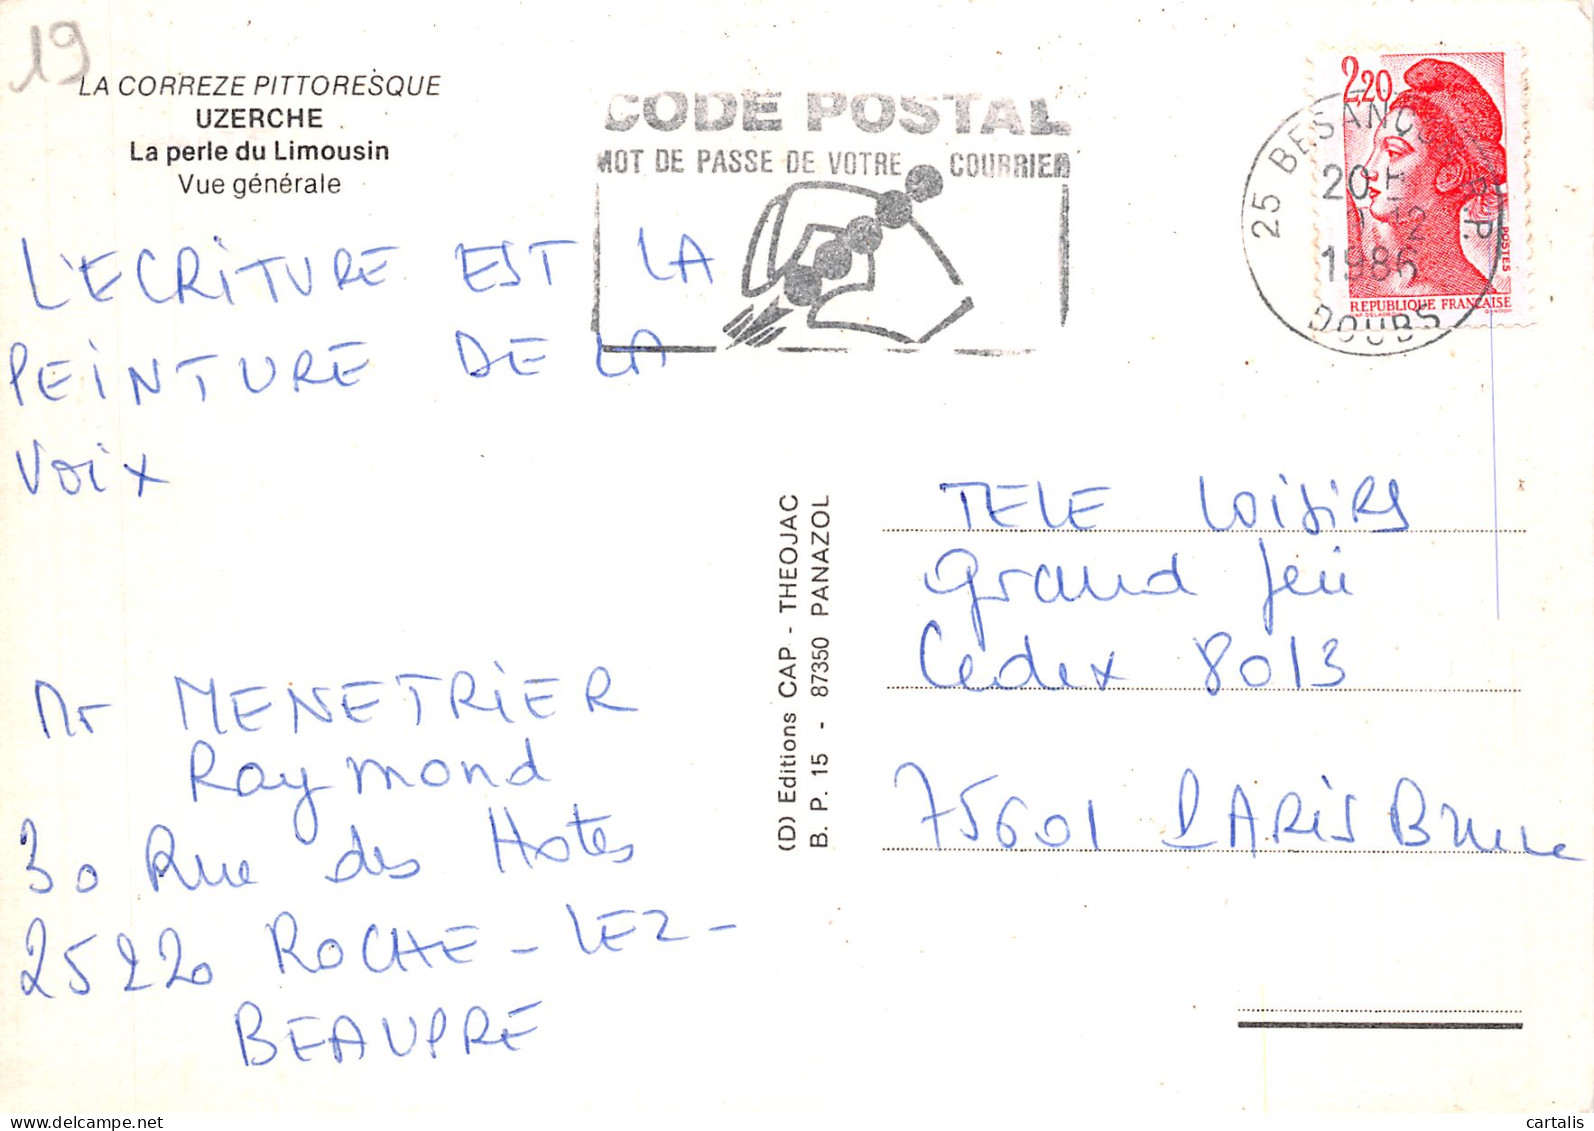 19
LA CORREZE PITTORESQUE
UZERCHE
La perle du Limousin
Vue générale
CODE POSTAL
MOT DE PASSE DE VOTRE COURRIER
25 BESANCON R.P.
20 H
12
1986
DOUBS
2,20
POSTES
REPUBLIQUE FRANÇAISE
L'ECRITURE EST LA
PEINTURE DE LA
VOIX
Mr MENETRIER
Raymond
30 Rue des Hotes
25220 ROCHE-LEZ-
BEAUPRE
(D) Editions CAP - THEOJAC
B. P. 15 - 87350 PANAZOL
TELE LOISIRS
Grand Jeu
Cedex 8013
75601 PARIS Brune
cartalis